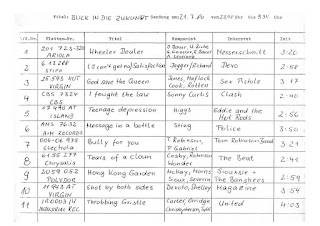 Titel: BLICK IN DIE ZUKUNFT Sendung am 21.7.80 von 2300 Uhr bis Uhr
Lfd.Nr. Platten-Nr. Titel Komponist Interpret Zeit
1 201 723-320 ARIOLA Wheeler Dealer Messerschmitt 3:20
2 STIFF (I can't get no) Satisfaction Jagger/Richard Devo 2:58
3 25 593 HOT VIRGIN God save the Queen Jones, Matlock Cook, Rotten Sex Pistols 3:17
4 CBS 7324 CBS I fought the law Sonny Curtis Clash 2:40
5 ISLAND Teenage depression Higgs Eddie and the Hot Rods 2:56
6 AMS 7632 A+M RECORDS Message in a bottle Sting Police 3:50
7 006-06 978 Electrola Bully for you T Robinson, P Gabriel Tom Robinson Band 3:21
8 Chrysalis Tears of a clown Cosby, Robinson Wonder The Beat 2:41
9 2059 052 POLYDOR Hong Kong Garden McKay, Morris Sioux, Severin Siouxsie + The Banshees 2:51
10 11 943 AT VIRGIN Shot by both sides Devoto, Shelley Magazine 3:59
11 INDUSTRIAL REC Throbbing Gristle Carter, Orridge Christopherson, United 4:03